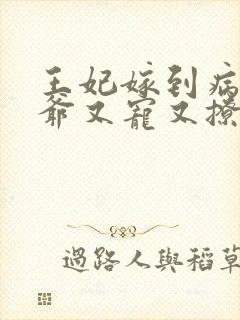 王妃嫁到病
爺又寵又撩
過路人與稻草